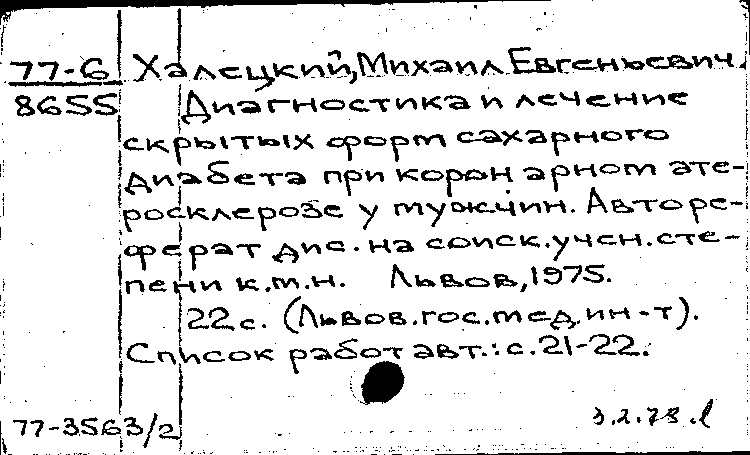 77-6 Халецкий, Михаил Евгеньевич.
8655 Диагностика и лечение
скрытых форм сахарного
диабета при коронарном ате-
росклерозе у мужчин. Авторе-
ферат дис. на соиск. учен. сте-
пени к.м.н. Львов, 1975.
22 с. (Львов. гос. мед. ин-т).
Список работ авт.: с. 21-22.
77-3563/2